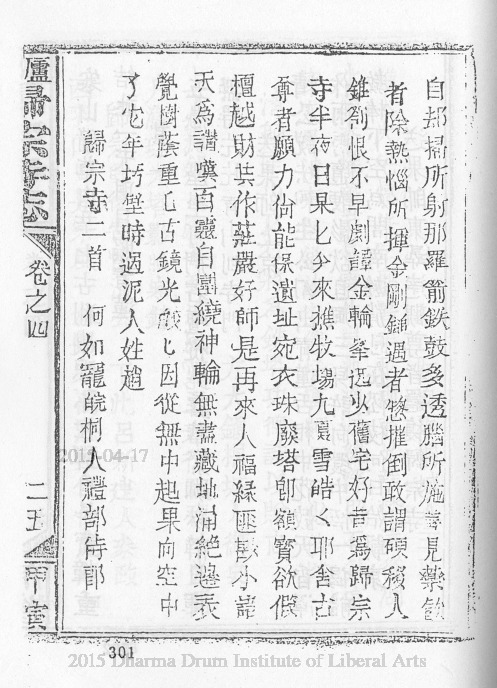 自却掃所射那羅箭鉄鼓多透腦所施善見藥飲
者除熱惱所揮金剛鎚遇者憗摧倒敢謂碩秘人
錐劄恨不早劇譚金輪峯迟少舊宅好昔為歸宗
寺半夜日杲匕兮來樵牧場九夏雪皓〻耶舍古
尊者願力尚能保遺址宛衣珠廢塔卽額寳欲假
檀越財共作莊嚴好師是再來人福緣匪小諸
天為讃嘆百靈自圍繞神輪無盡藏地涌絶邊表
覺樹蔭重匕古鏡光皎匕因從無中起果向空中
了它年圬墍時過泥人姓趙
歸宗寺二首 何如寵皖桐人禮部侍郎
廬歸宗寺志
卷之四
二五
甲寅
2015-04-17
301
2015 Dharma Drum Institute of Liberal Arts